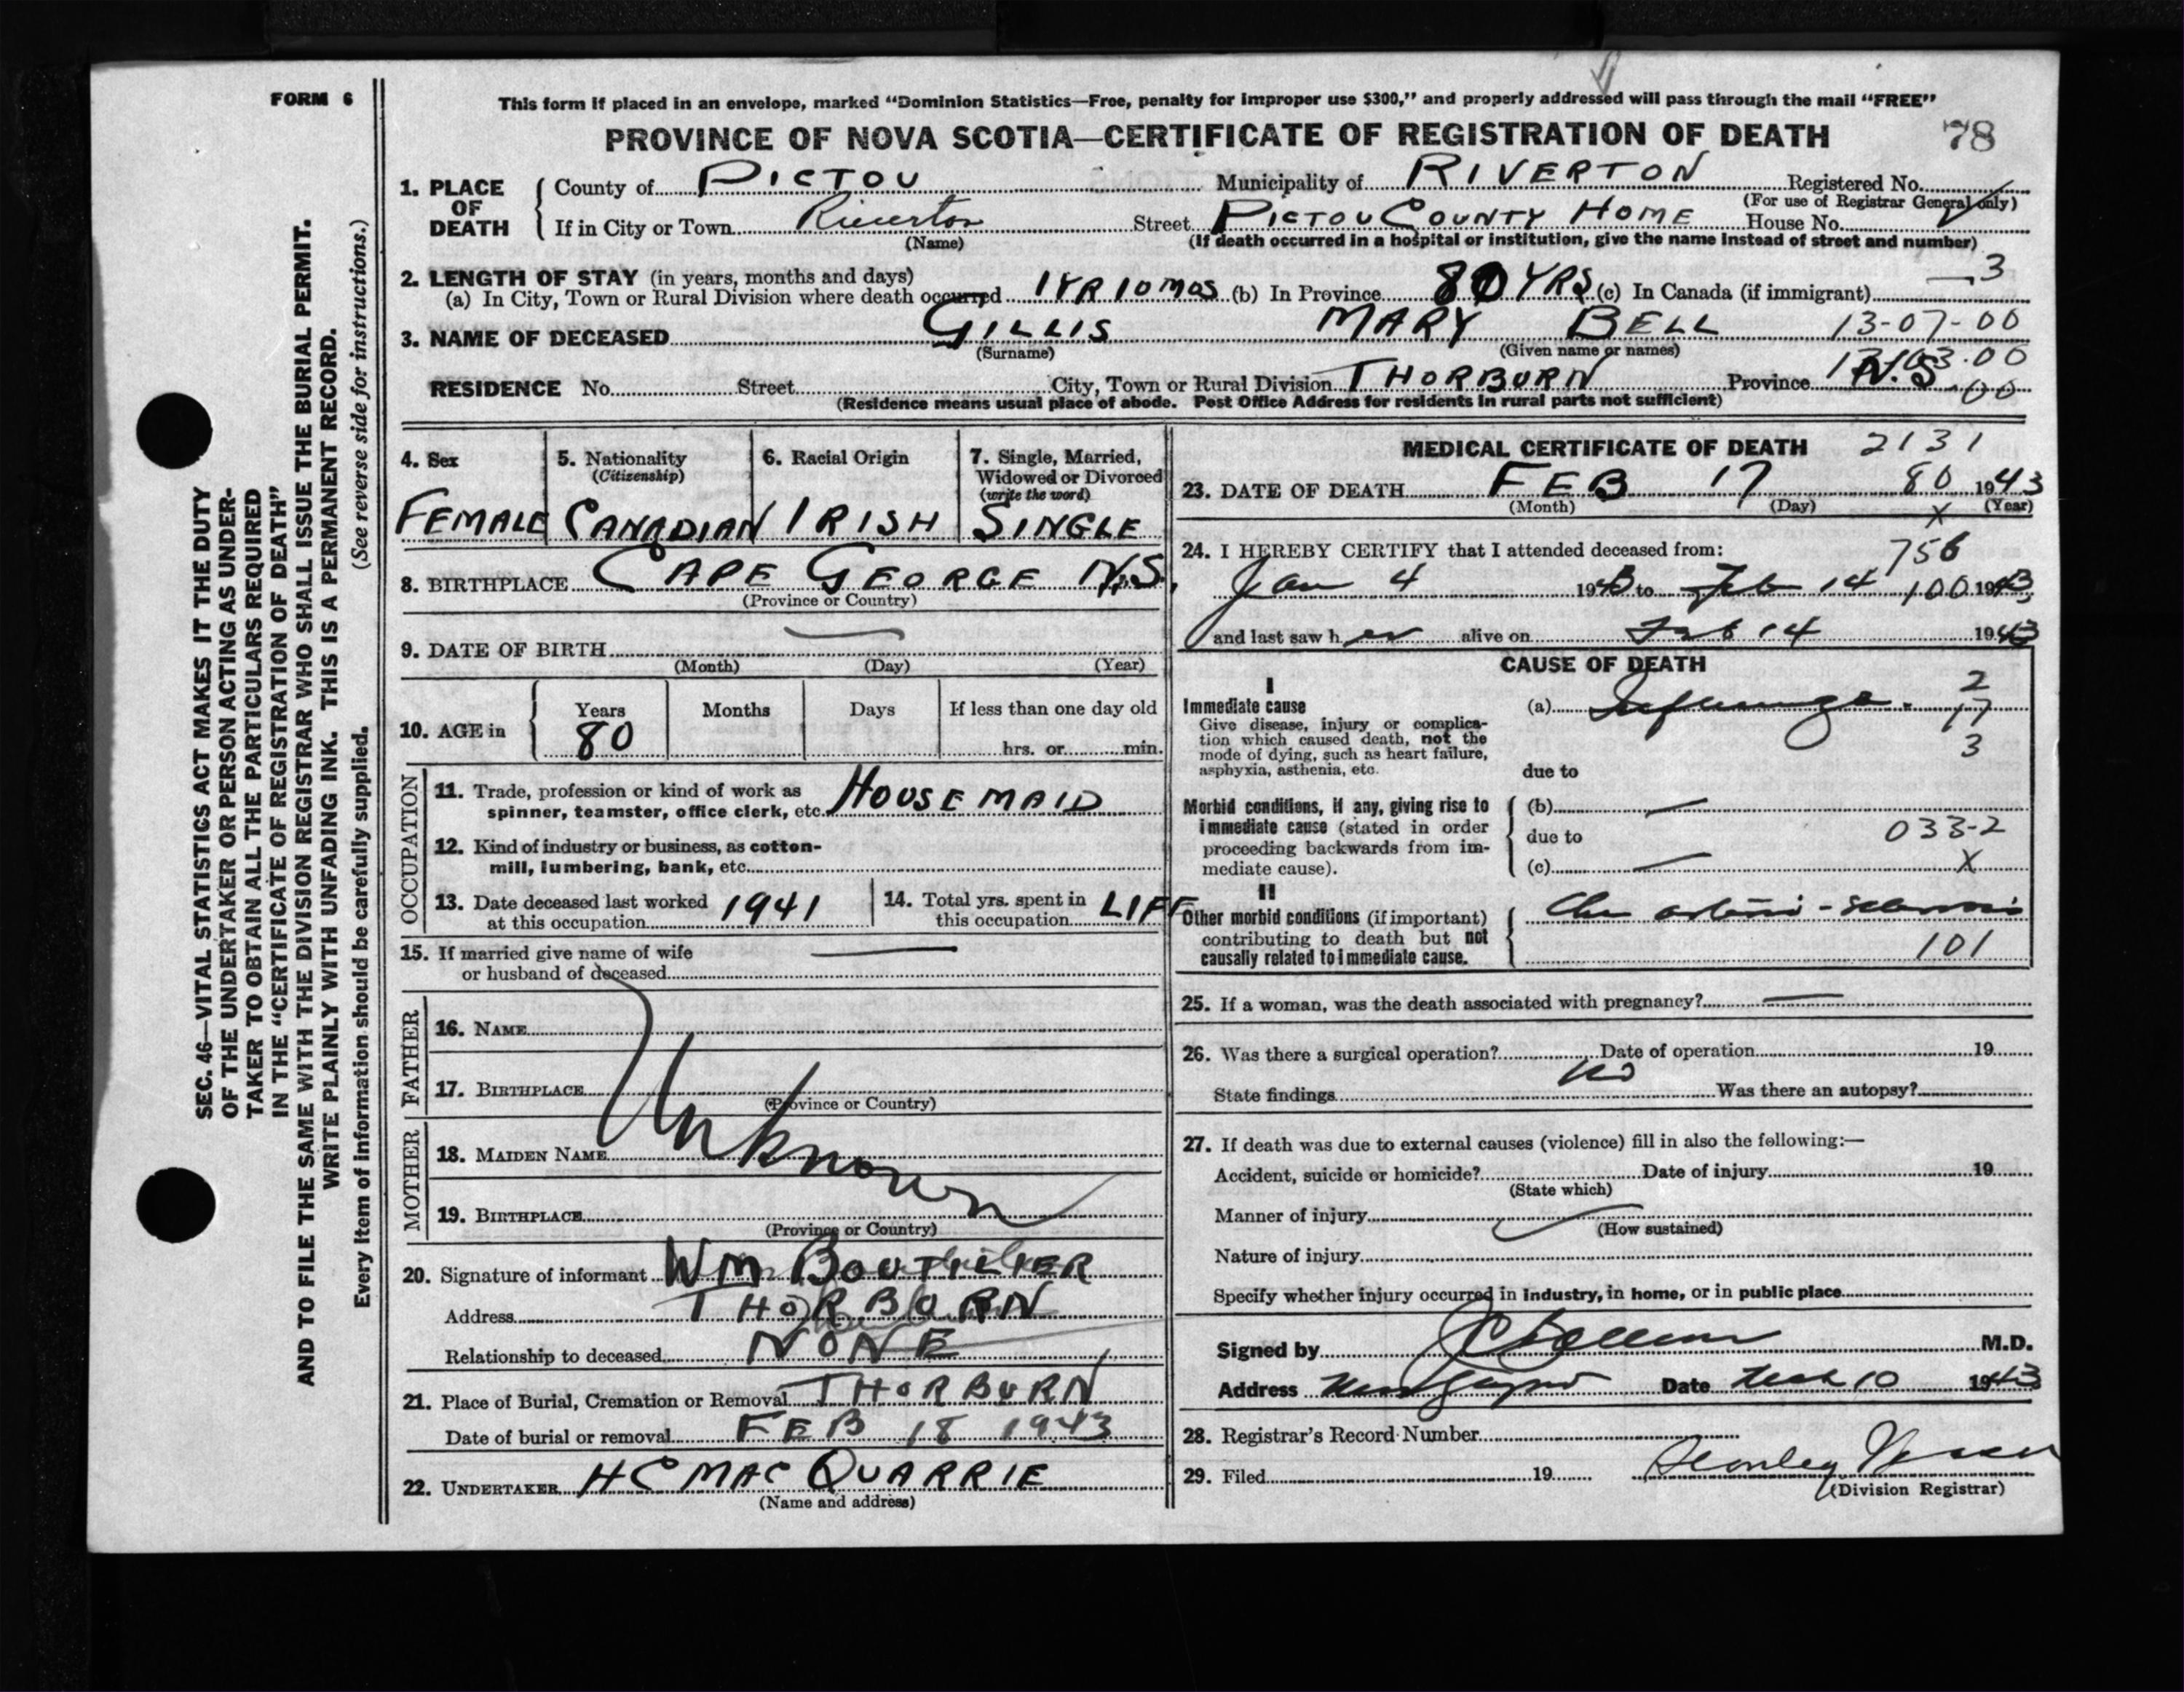 FORM 6
This form if placed in an envelope, marked “Dominion Statistics—Free, penalty for improper use $300,” and properly addressed will pass through the mail “FREE”
PROVINCE OF NOVA SCOTIA—CERTIFICATE OF REGISTRATION OF DEATH 78
1. PLACE OF DEATH
County of PICTOU Municipality of RIVERTON Registered No.
(For use of Registrar General only)
If in City or Town Riverton Street PICTOU COUNTY HOME House No.
(Name) (If death occurred in a hospital or institution, give the name instead of street and number)
2. LENGTH OF STAY (in years, months and days) — 3
(a) In City, Town or Rural Division where death occurred 1 YR 10 MOS (b) In Province 80 YRS (c) In Canada (if immigrant)
3. NAME OF DECEASED GILLIS MARY BELL 13-07-00
(Surname) (Given name or names)
RESIDENCE No. Street City, Town or Rural Division THORBURN Province N.S. 00
(Residence means usual place of abode. Post Office Address for residents in rural parts not sufficient)
4. Sex
FEMALE
5. Nationality
(Citizenship)
CANADIAN
6. Racial Origin
IRISH
7. Single, Married,
Widowed or Divorced
(write the word)
SINGLE
8. BIRTHPLACE CAPE GEORGE N.S.
(Province or Country)
9. DATE OF BIRTH —
(Month) (Day) (Year)
10. AGE in
Years Months Days If less than one day old
80
hrs. or min.
OCCUPATION
11. Trade, profession or kind of work as
spinner, teamster, office clerk, etc. HOUSEMAID
12. Kind of industry or business, as cotton-
mill, lumbering, bank, etc.
13. Date deceased last worked
at this occupation 1941
14. Total yrs. spent in
this occupation LIFE
15. If married give name of wife
or husband of deceased —
FATHER
16. NAME
17. BIRTHPLACE
(Province or Country)
Unknown
MOTHER
18. MAIDEN NAME
19. BIRTHPLACE
(Province or Country)
20. Signature of informant WM BOUTILIER
Address THORBURN
Relationship to deceased NONE
21. Place of Burial, Cremation or Removal THORBURN
Date of burial or removal FEB 18 1943
22. UNDERTAKER H C MACQUARRIE
(Name and address)
MEDICAL CERTIFICATE OF DEATH 2131
23. DATE OF DEATH FEB 17 80 1943
(Month) (Day) (Year)
X
24. I HEREBY CERTIFY that I attended deceased from: 756
Jan 4 1943 to Feb 14 100 1943
and last saw her alive on Feb 14 1943
CAUSE OF DEATH
I
Immediate cause
Give disease, injury or complica-
tion which caused death, not the
mode of dying, such as heart failure,
asphyxia, asthenia, etc.
(a) Influenza
2
17
3
due to
Morbid conditions, if any, giving rise to
immediate cause (stated in order
proceeding backwards from im-
mediate cause).
(b) —
due to 033-2
(c) — X
II
Other morbid conditions (if important)
contributing to death but not
causally related to immediate cause.
Chr arterio-sclerosis
101
25. If a woman, was the death associated with pregnancy? —
26. Was there a surgical operation? Date of operation 19
no
State findings Was there an autopsy?
27. If death was due to external causes (violence) fill in also the following:—
Accident, suicide or homicide? Date of injury 19
(State which)
Manner of injury
(How sustained)
Nature of injury
Specify whether injury occurred in industry, in home, or in public place
Signed by M.D.
Address New Glasgow Date 10 1943
28. Registrar's Record Number
29. Filed 19 Stanley
(Division Registrar)
SEC. 46—VITAL STATISTICS ACT MAKES IT THE DUTY
OF THE UNDERTAKER OR PERSON ACTING AS UNDER-
TAKER TO OBTAIN ALL THE PARTICULARS REQUIRED
IN THE “CERTIFICATE OF REGISTRATION OF DEATH”
AND TO FILE THE SAME WITH THE DIVISION REGISTRAR WHO SHALL ISSUE THE BURIAL PERMIT.
WRITE PLAINLY WITH UNFADING INK. THIS IS A PERMANENT RECORD.
Every item of information should be carefully supplied. (See reverse side for instructions.)